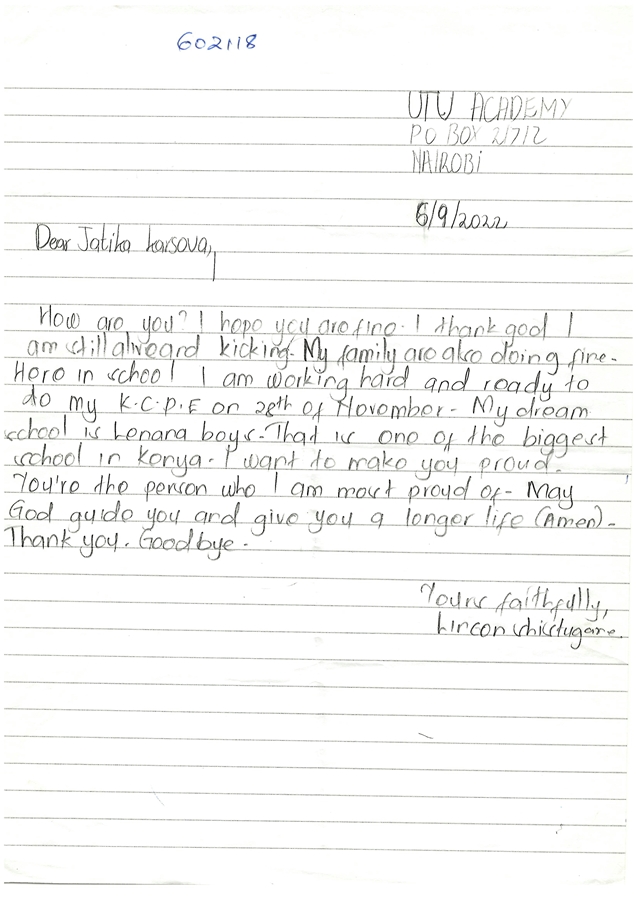 602118
UTU ACADEMY
PO BOX 21712
NAIROBI
6/9/2022
Dear Jatika Karsova,
How are you? I hope you are fine. I thank god I
am still alive and kicking. My family are also doing fine.
Here in school I am working hard and ready to
do my K.C.P.E on 28th of November. My dream
school is Lenana boys. That is one of the biggest
school in Kenya. I want to make you proud.
You're the person who I am most proud of. May
God guide you and give you a longer life (Amen).
Thank you. Goodbye.
Yours faithfully,
Lincon